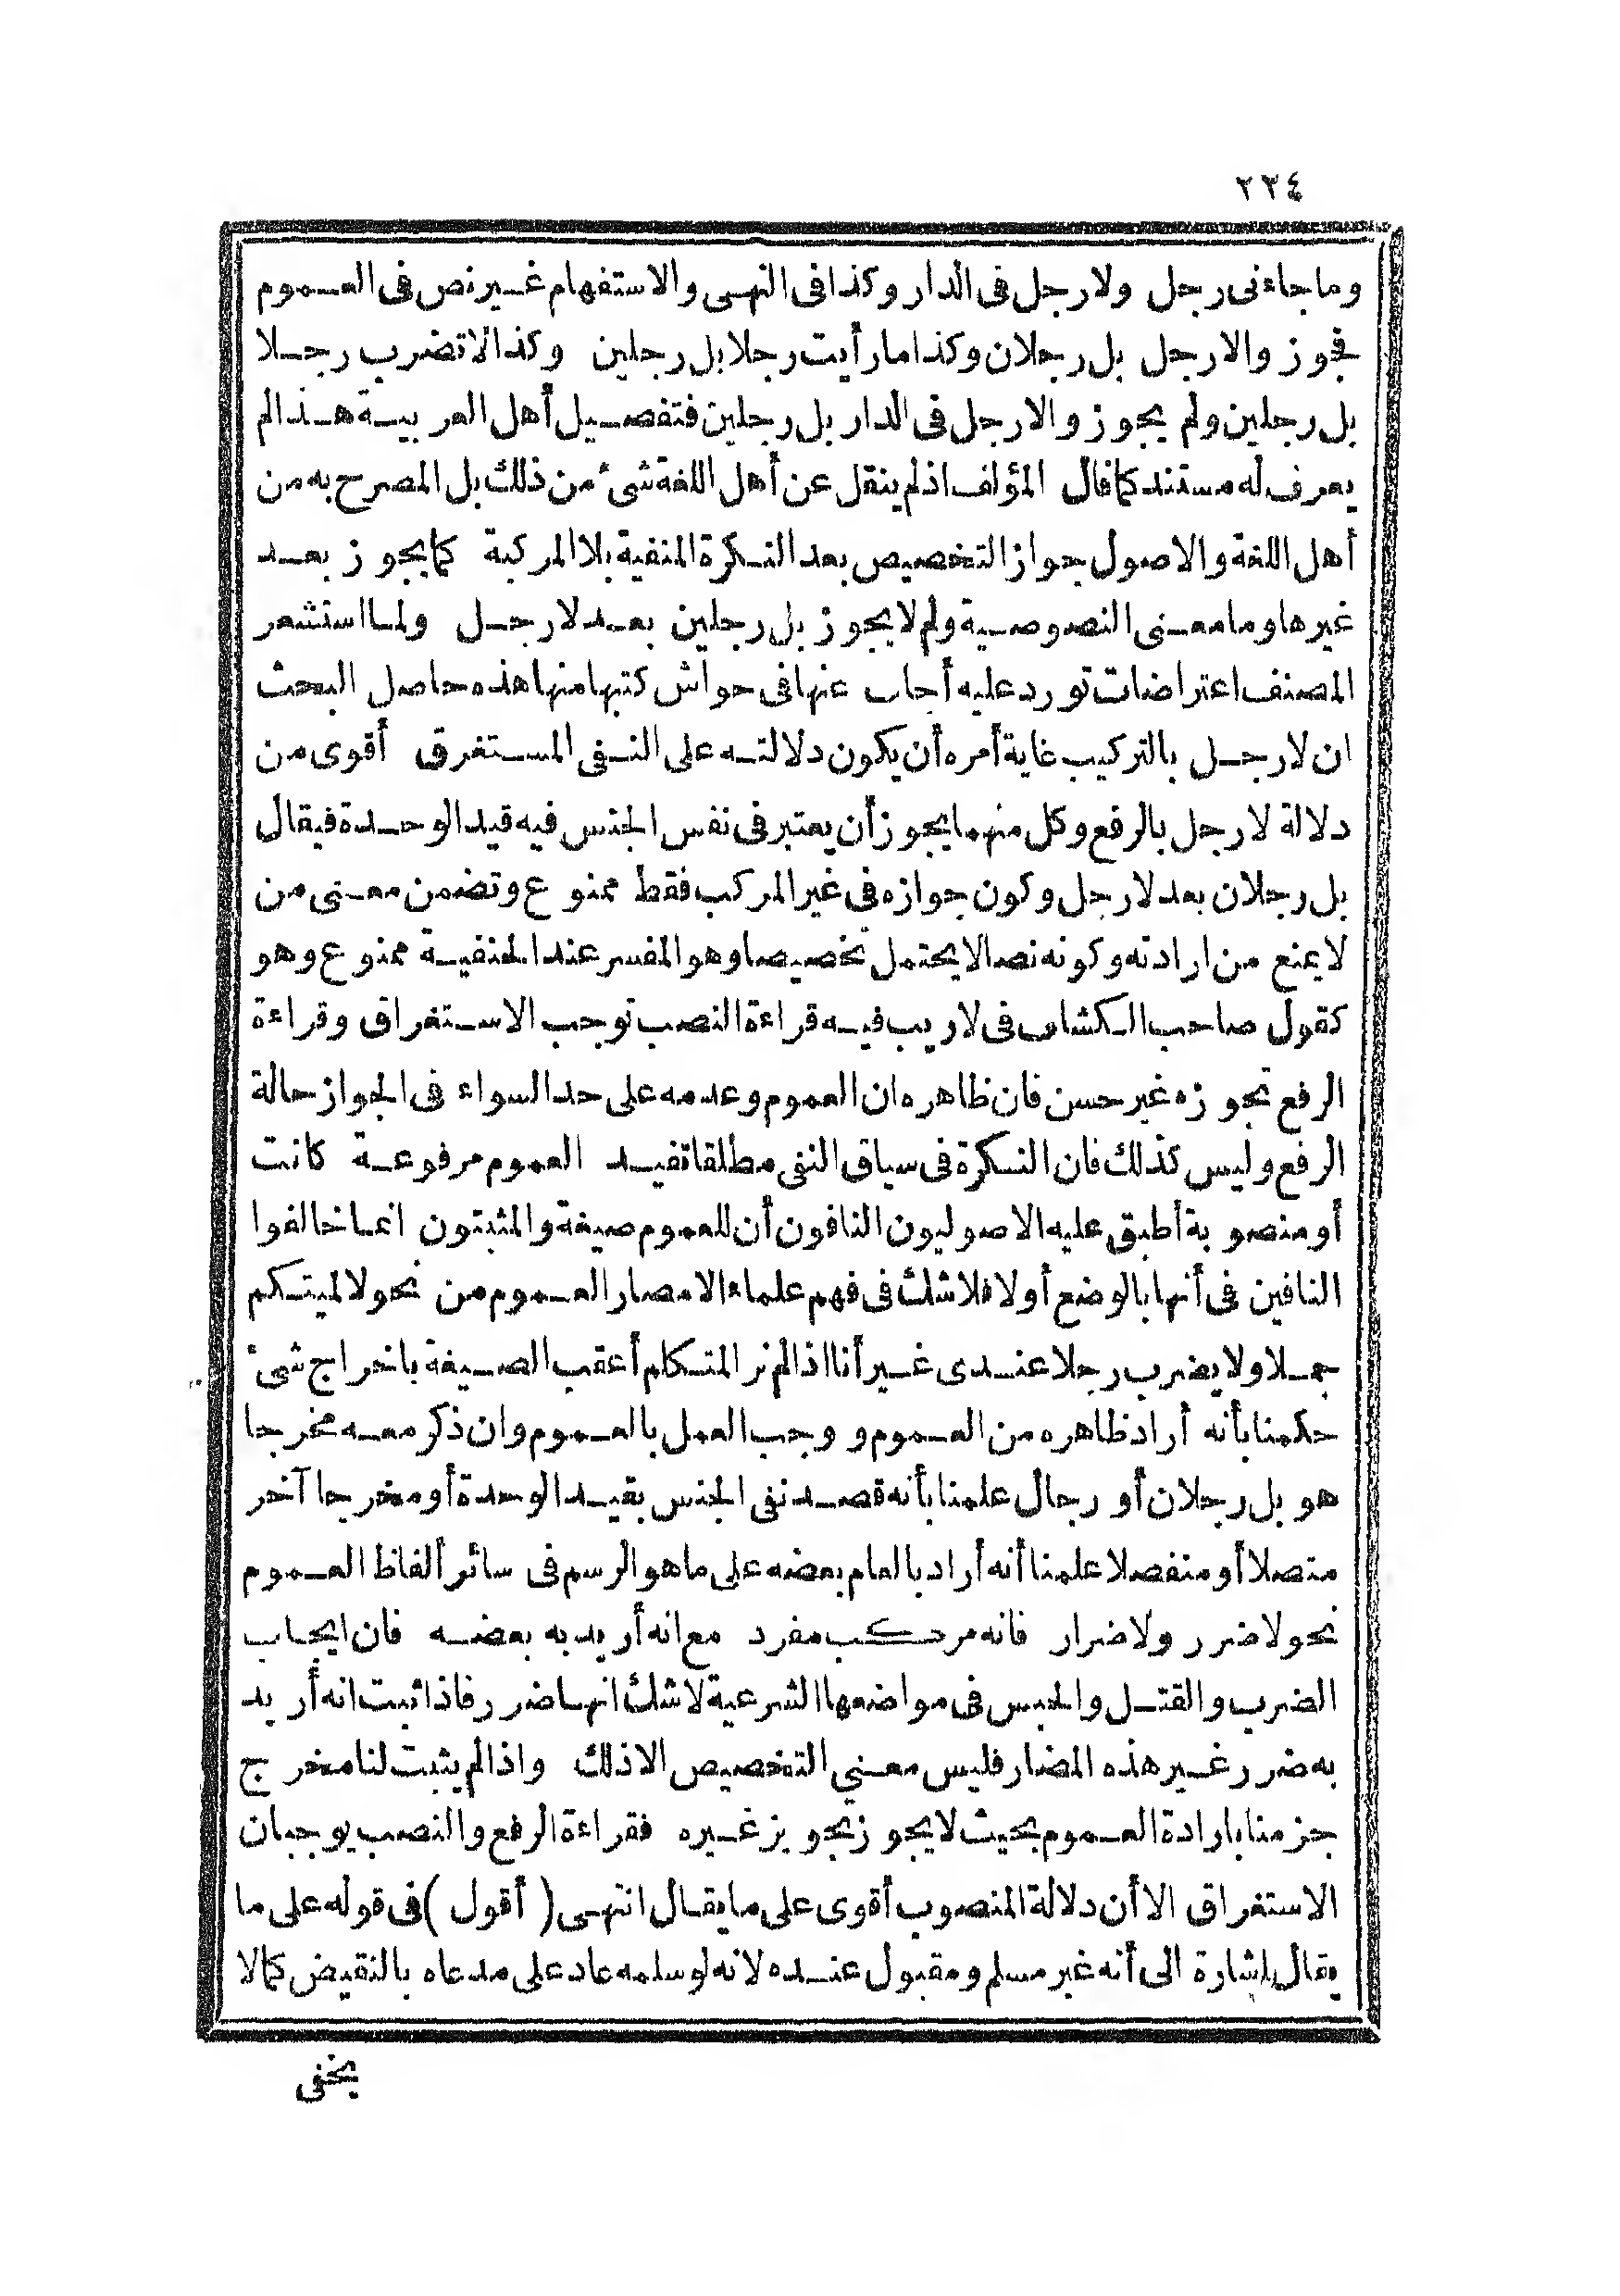 ٢٣٤
وما جاءنى رجل ولا رجل فى الدار وكذا فى النهى والاستفهام غير نص فى العموم
فجوز والا رجل بل رجلان وكذا ما رأيت رجلا بل رجلين وكذا لا تضرب رجلا
بل رجلين ولم يجوزوا لا رجل فى الدار بل رجلين فتفصيل أهل العربية هذا لم
يعرف له مستند كما قال المؤلف اذ لم ينقل عن أهل اللغة شئ من ذلك بل المصرح به من
أهل اللغة والاصول جواز التخصيص بعد النكرة المنفية بلا المركبة كما يجوز بعد
غيرها وما معنى النصوصية ولم لا يجوز بل رجلين بعد لا رجل ولما استشعر
المصنف اعتراضات تورد عليه أجاب عنها فى حواش كتبها منها هذه حاصل البحث
ان لا رجل بالتركيب غاية أمره أن يكون دلالته على النفى المستغرق أقوى من
دلالة لا رجل بالرفع وكل منهما يجوز أن يعتبر فى نفس الجنس فيه قيد الوحدة فيقال
بل رجلان بعد لا رجل وكون جوازه فى غير المركب فقط ممنوع وتضمن معنى من
لا يمنع من ارادته وكونه نصا لا يحتمل تخصيصا وهو المفسر عند الحنفية ممنوع وهو
كقول صاحب الكشاف فى لا ريب فيه قراءة النصب توجب الاستغراق وقراءة
الرفع تجوزه غير حسن فان ظاهره ان العموم وعدمه على حد السواء فى الجواز حالة
الرفع وليس كذلك فان النكرة فى سياق النفى مطلقا تفيد العموم مرفوعة كانت
أو منصوبة أطبق عليه الاصوليون النافون أن للعموم صيغة والمثبتون انما خالفوا
النافين فى أنها بالوضع أولا فلا شك فى فهم علماء الامصار العموم من نحو لا لميتكم
جملا ولا يضرب رجلا عندى غير أنا اذا لم نر المتكلم أعقب الصيغة باخراج شئ
حكمنا بأنه أراد ظاهره من العموم ووجب العمل بالعموم وان ذكر معه مخرجا
هو بل رجلان أو رجال علمنا بأنه قصد نفى الجنس بقيد الوحدة أو مخرجا آخر
متصلا أو منفصلا علمنا أنه أراد بالعام بعضه على ما هو الرسم فى سائر ألفاظ العموم
نحو لا ضرر ولا ضرار فانه مركب مفرد مع انه أريد به بعضه فان ايجاب
الضرب والقتل والحبس فى مواضعها الشرعية لا شك انها ضرر فاذا ثبت انه أريد
به ضرر غير هذه المضار فليس معنى التخصيص الا ذلك واذا لم يثبت لنا مخرج
جزمنا بارادة العموم بحيث لا يجوز تجويز غيره فقراءة الرفع والنصب يوجبان
الاستغراق الا أن دلالة المنصوب أقوى على ما يقال انتهى (أقول) فى قوله على ما
يقال إشارة الى أنه غير مسلم ومقبول عنده لانه لو سلمه عاد على مدعاه بالنقيض كما لا
يخفى